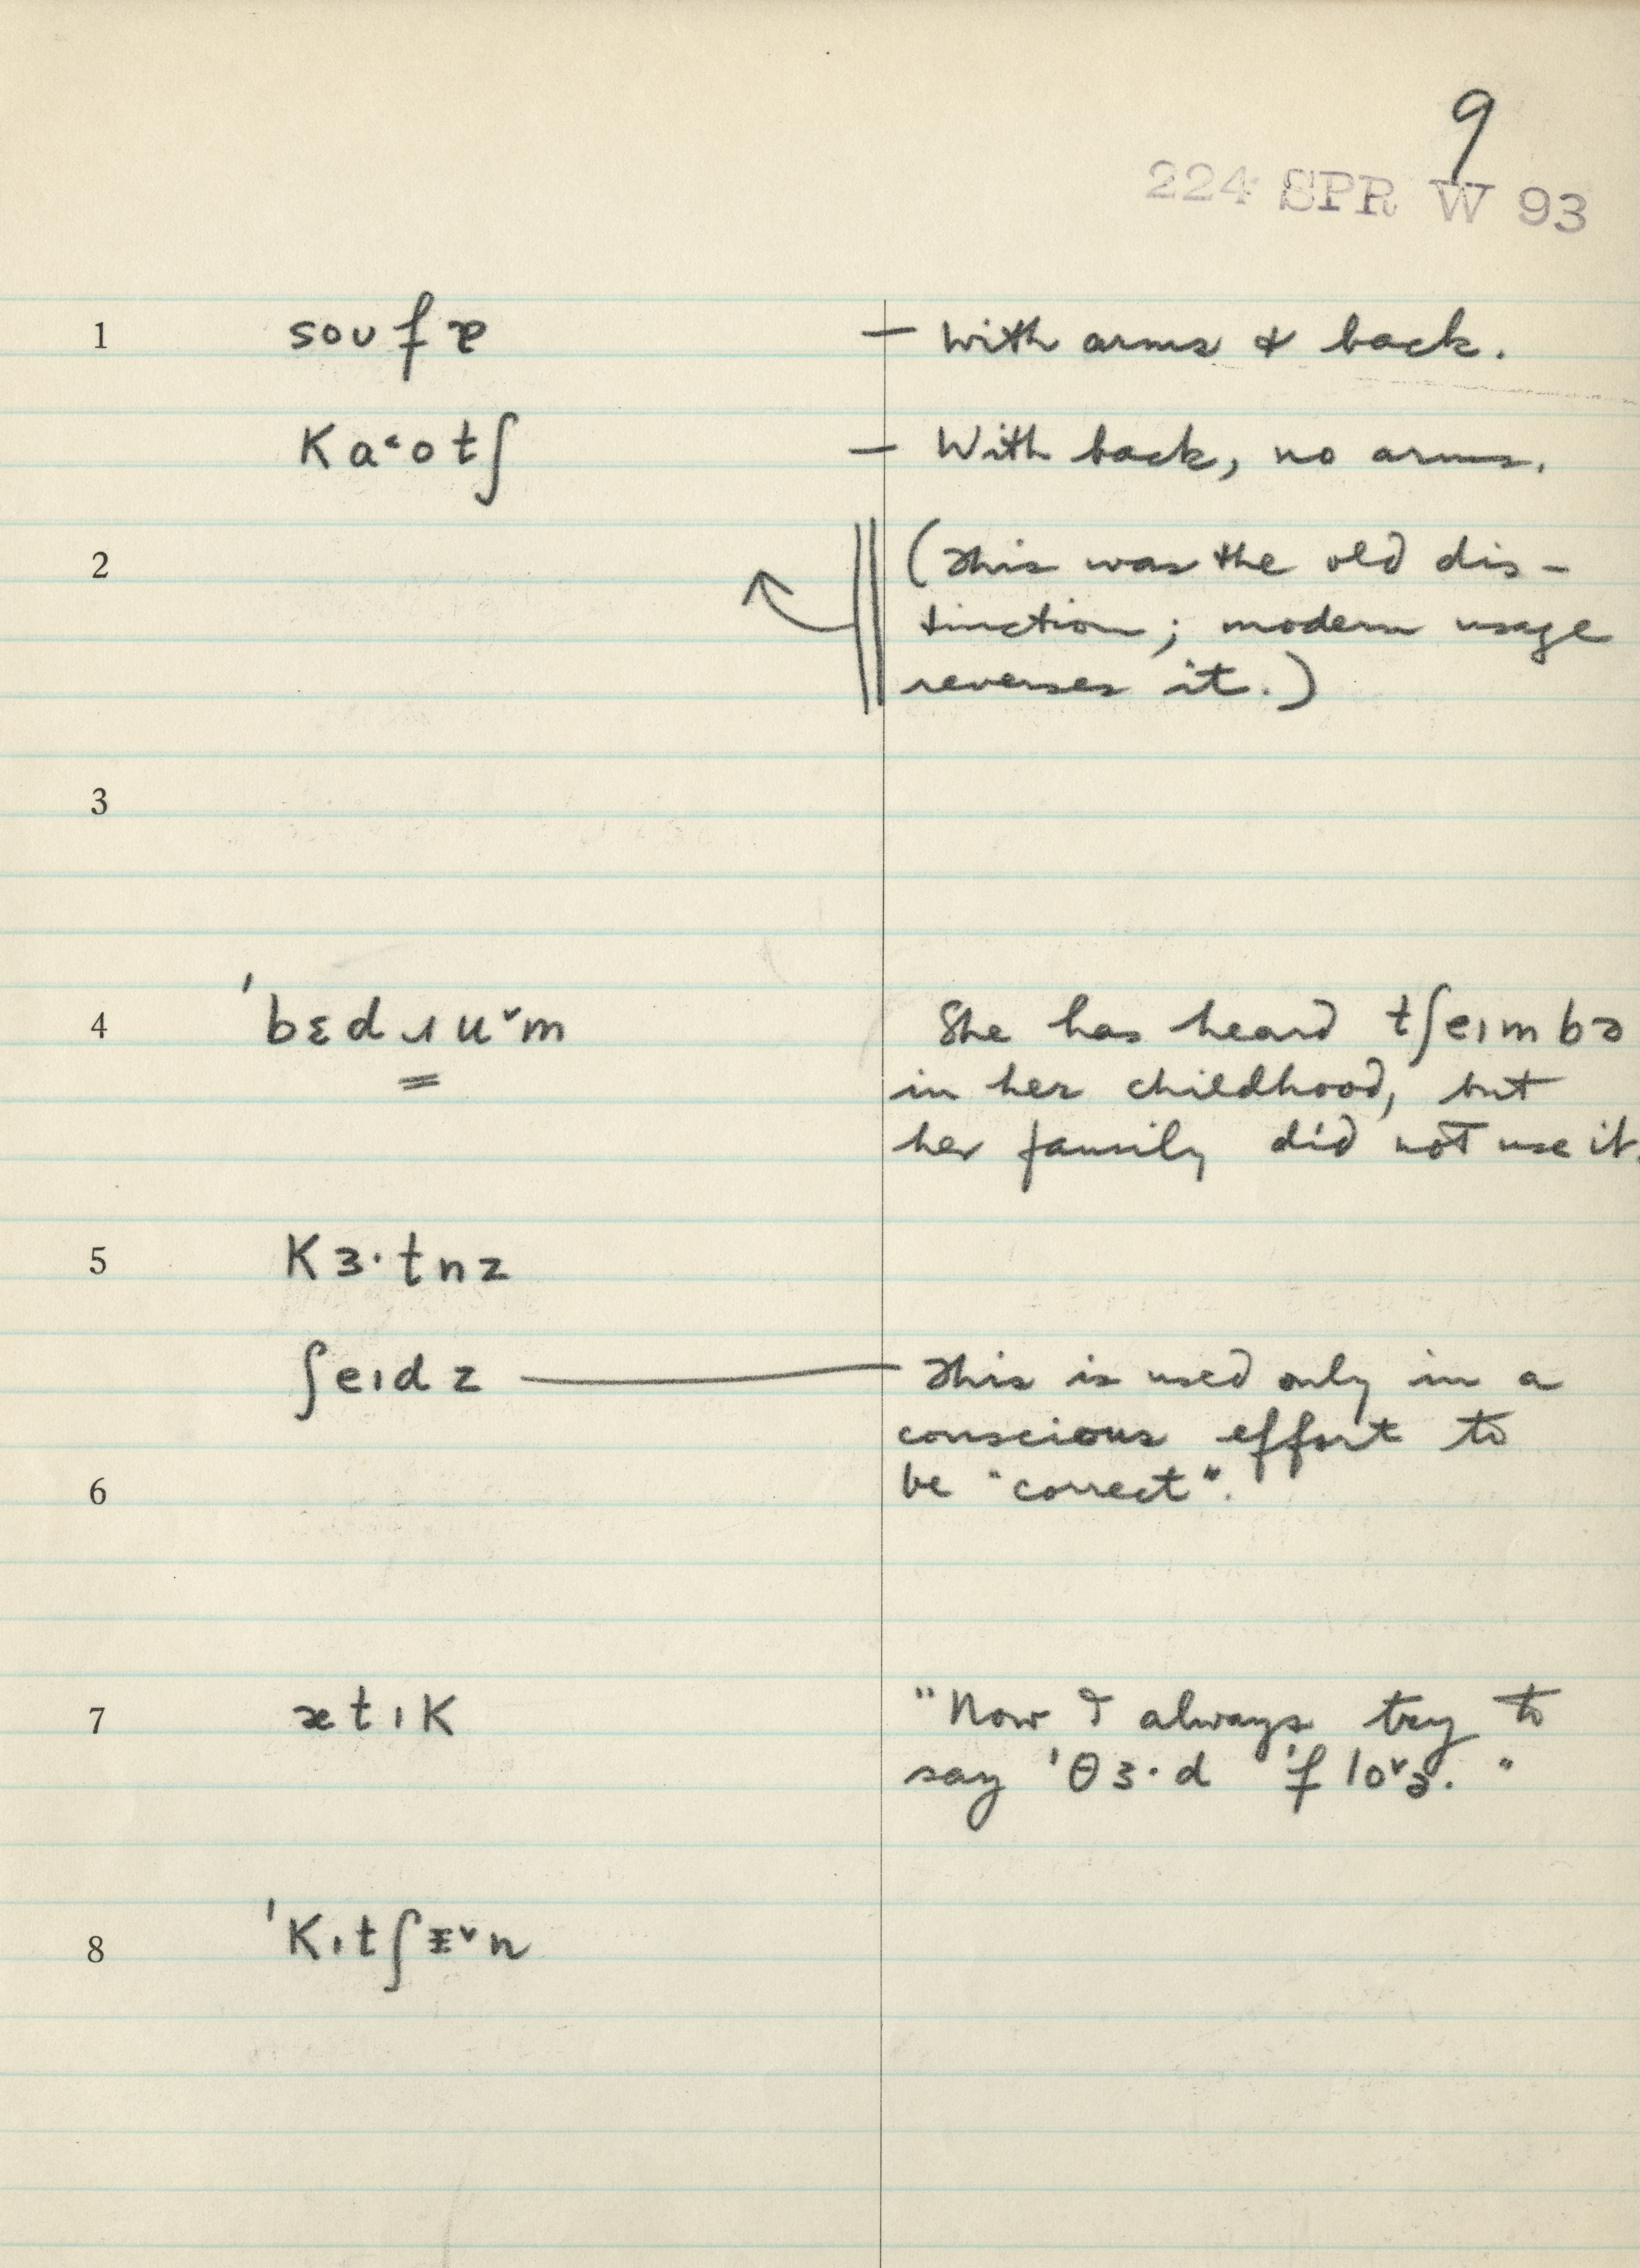 9
224 SPR W 93
1 soufɐ — With arms & back.
Ka˂otʃ — With back, no arms.
2 (This was the old dis-
tinction; modern usage
reverses it.)
3
4 ˈbɛdɹu˅m She has heard tʃeɪmbə
in her childhood, but
her family did not use it.
5 Kɜ·tnz
ʃeɪdz — This is used only in a
conscious effort to
6 be "correct".
7 ætɪK "Now I always try to
say ˈθɜ·d ˈflo˅ə."
8 ˈKɪtʃᵻ˅n